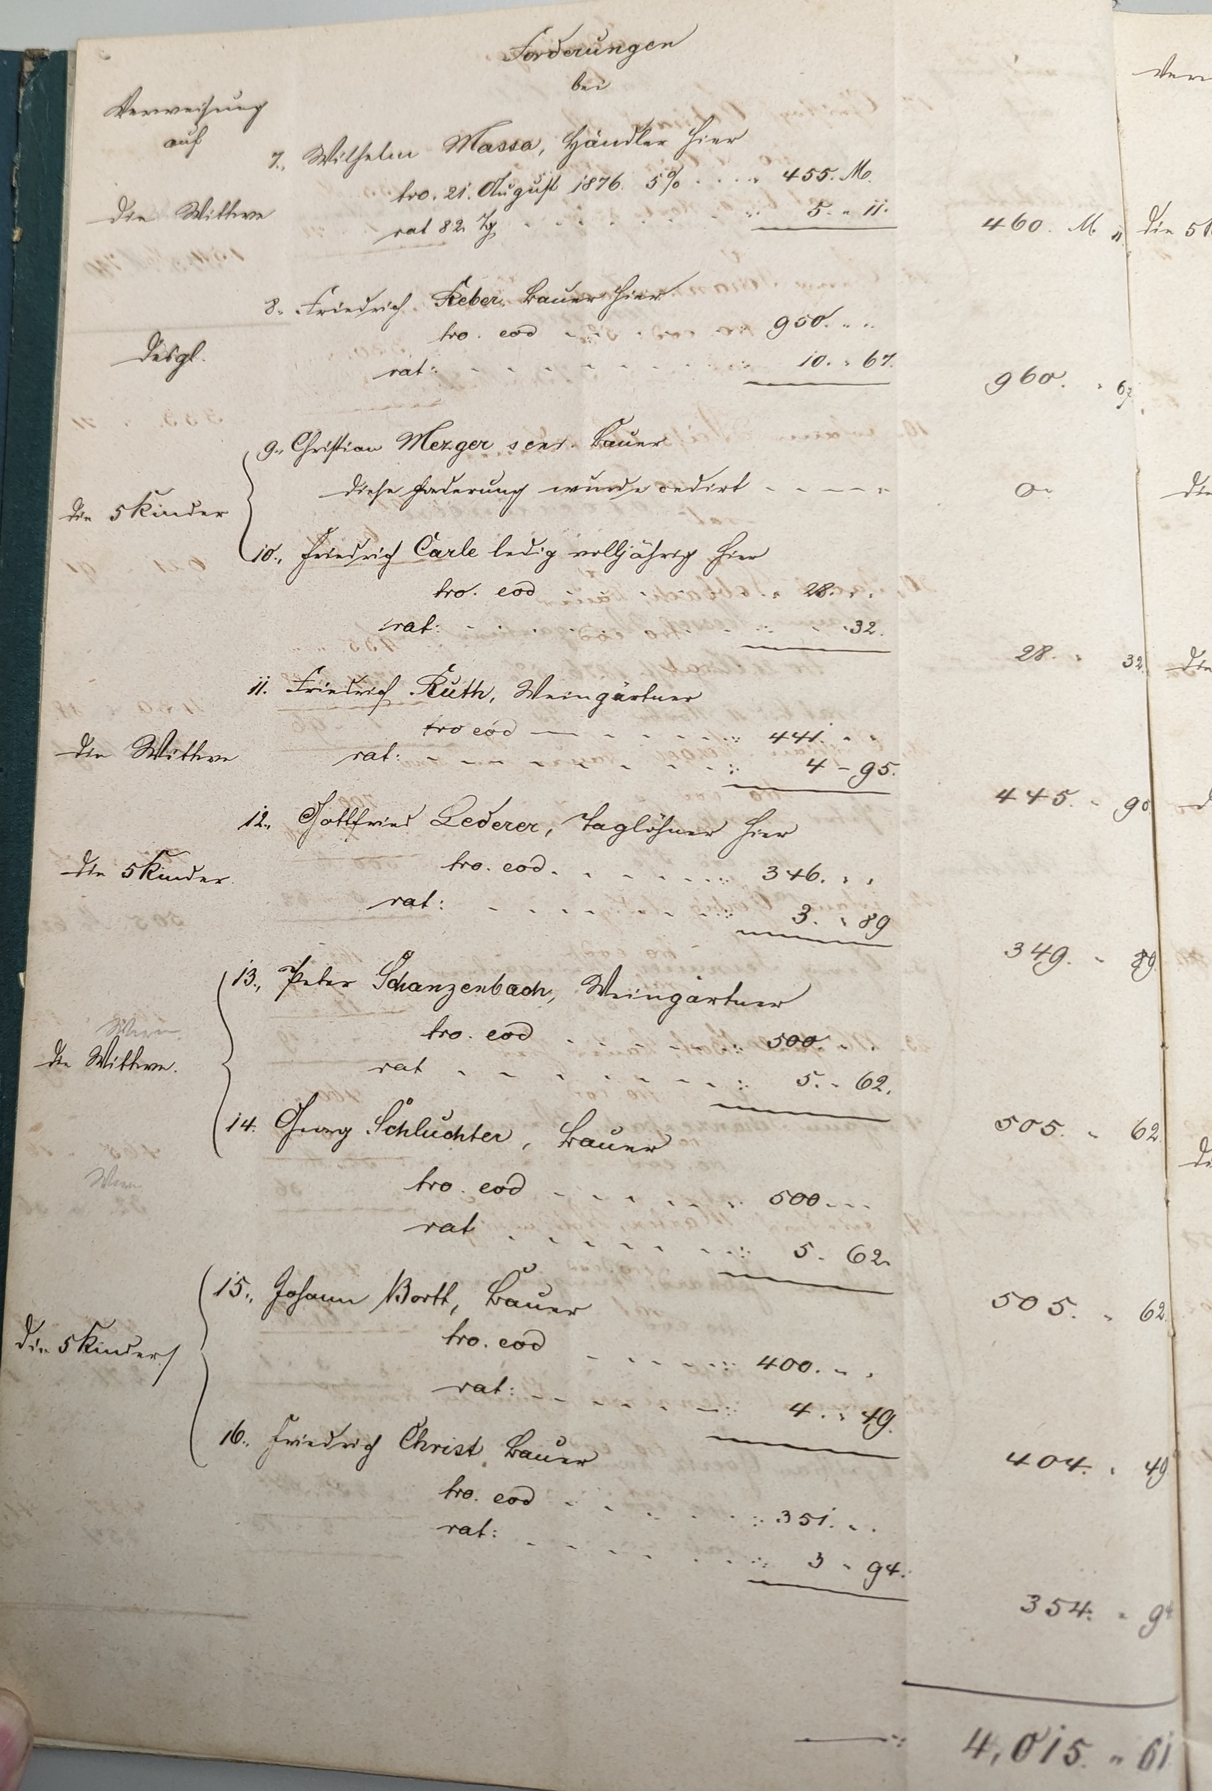 Forderungen
bei
Verweisung
auf
7., Wilhelm Massa, Händler hier
tro. 21. August 1876. 5% . . . . 455. M.
die Wittwe
rat 82 Tg . . . . 5. " 11.
460. M. 11
8. Friedrich Reber, Bauer hier
tro. eod 950. " "
desgl.
rat: . . . . 10. " 67.
960. " 67
9., Christian Mezger sen. Bauer
diese Forderung wurde cedirt - - - - -
0.
die 5 Kinder
10., Friedrich Carle ledig volljährig hier
tro. eod 28. " "
rat: . . . . " 32.
28. " 32
11. Friedrich Ruth, Weingärtner
tro eod 441. " "
die Wittwe
rat: . . . . 4 - 95.
445. - 95
12., Gottfried Lederer, Taglöhner hier
tro. eod. . . . . 346. " "
die 5 Kinder.
rat: . . . . 3. " 89
349. - 89
13., Peter Schanzenbach, Weingärtner
tro. eod 500. "
die Wittwe.
rat . . . . 5. - 62.
505. " 62
14. Georg Schluchter, Bauer
tro. eod . . . . 500. - -
rat . . . . 5. 62.
505. " 62
15., Johann Borth, Bauer
tro. eod . . . . 400. " "
die 5 Kinder
rat: . . . . 4. " 49.
404. " 49
16., Friedrich Christ, Bauer
tro. eod . . . . 351. " "
rat: . . . . 3 " 94.
354. " 94
4,015. " 61